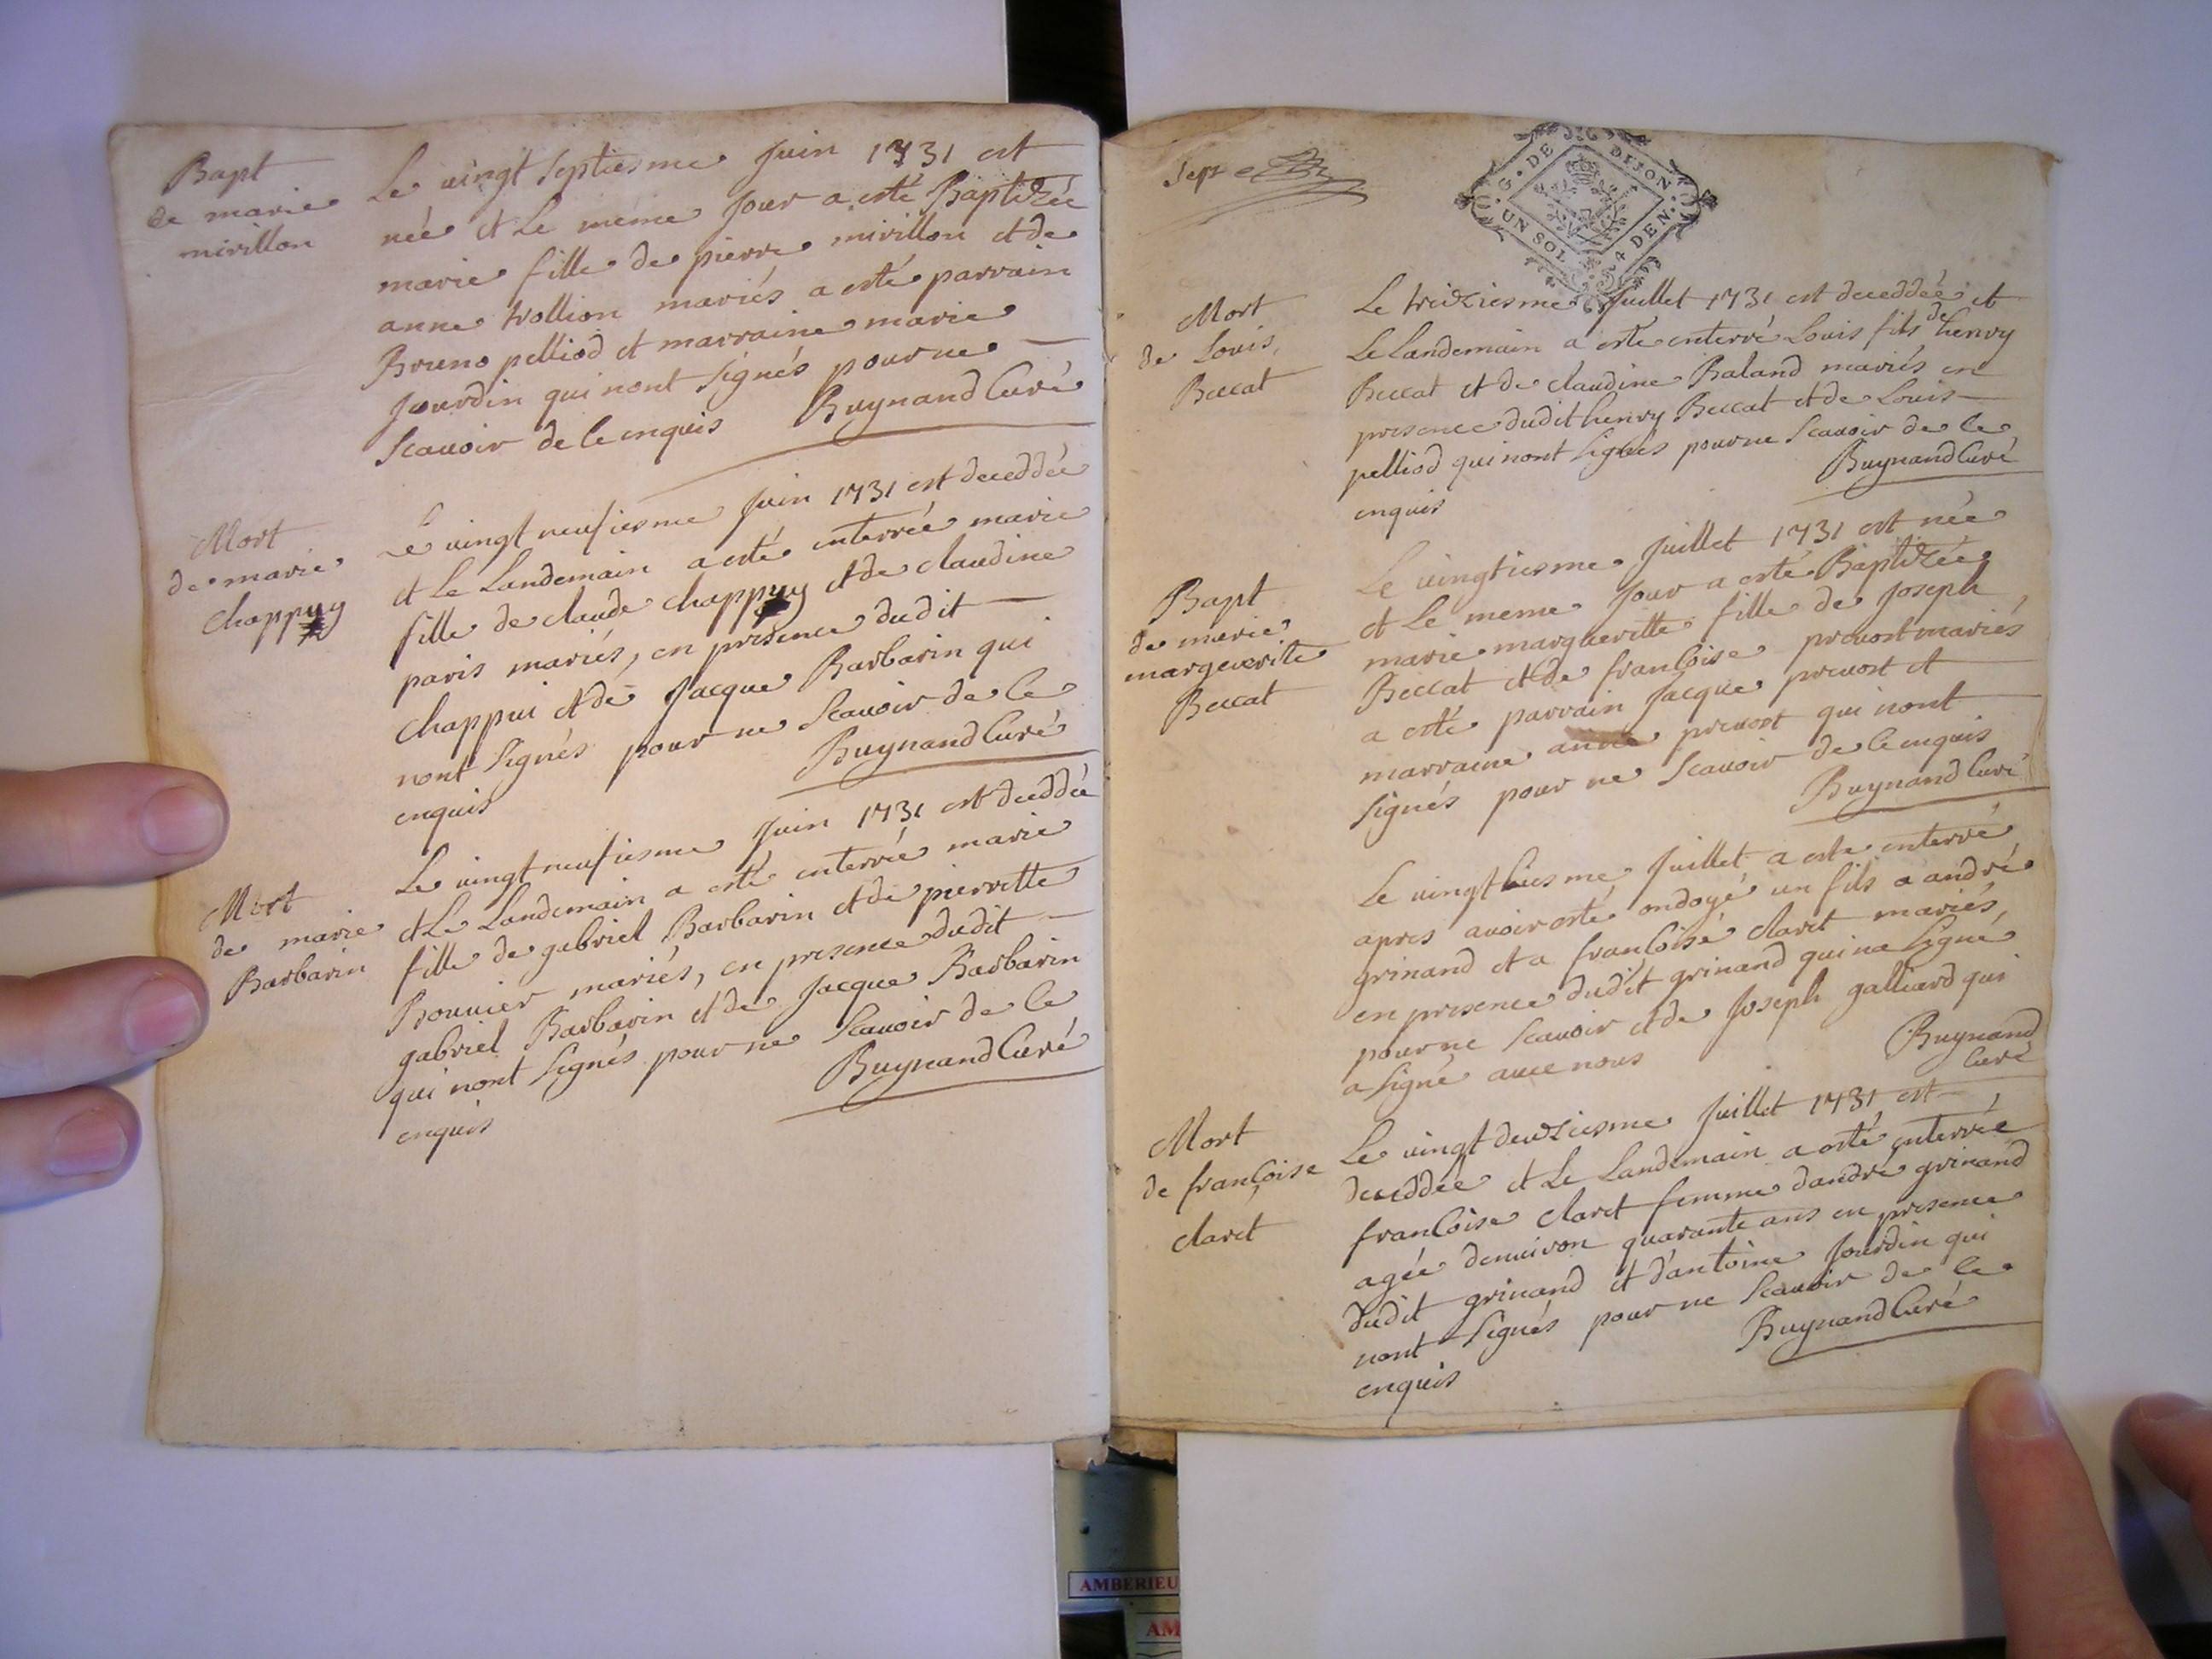 Bapt
de marie
mirillon
Le vingt septiesme Juin 1731 est
née et Le meme Jour a esté Baptizée
marie fille de pierre mirillon et de
anne trollion mariés a esté parrain
Bruno pelliod et marraine marie
Jourdin qui nont signés pour ne
scauoir de ce enquis Buynand Curé
Mort
de marie
chappuy
Le vingt neufiesme Juin 1731 est deceddée
et Le Landemain a esté enterrée marie
fille de claude chappuy et de claudine
paris mariés, en presence dudit
chappui et de Jacque Barbarin qui
nont signés pour ne scauoir de ce
enquis Buynand Curé
Mort
de marie
Barbarin
Le vingt neufiesme Juin 1731 est deceddée
et Le Landemain a esté enterrée marie
fille de gabriel Barbarin et de pierrette
Bouuier mariés, en presence dudit
gabriel Barbarin et de Jacque Barbarin
qui nont signés pour ne scauoir de ce
enquis Buynand Curé
Sept
G. DE DIJON
UN SOL 4 DEN.
Mort
de Louis
Beccat
Le treiziesme Juillet 1731 est deceddée et
Le Landemain a esté enterré Louis fils de henry
Beccat et de claudine Baland mariés en
presence dudit henry Beccat et de Louis
pelliod qui nont signés pour ne scauoir de ce
enquis Buynand Curé
Bapt
de marie
margueritte
Beccat
Le vingtiesme Juillet 1731 est née
et Le meme Jour a esté Baptizée
marie margueritte fille de Joseph
Beccat et de francoise preuost mariés
a esté parrain Jacque preuost et
marraine anne preuost qui nont
signés pour ne scauoir de ce enquis
Buynand Curé
Le vingt Juillet a este enterré
apres auoir esté ondoyé un fils a andré
grinand et a francoise claret mariés,
en presence dudit grinand qui na signé
pour ne scauoir et de Joseph galliard qui
a signé auec nous Buynand
Curé
Mort
de francoise
claret
Le vingt deuziesme Juillet 1731 est
deceddée et Le Landemain a esté enterrée
francoise claret femme dandré grinand
agée denuiron quarante ans en presence
dudit grinand et dantoine Jourdin qui
nont signés pour ne scauoir de ce
enquis Buynand Curé
AMBERIEU
AM